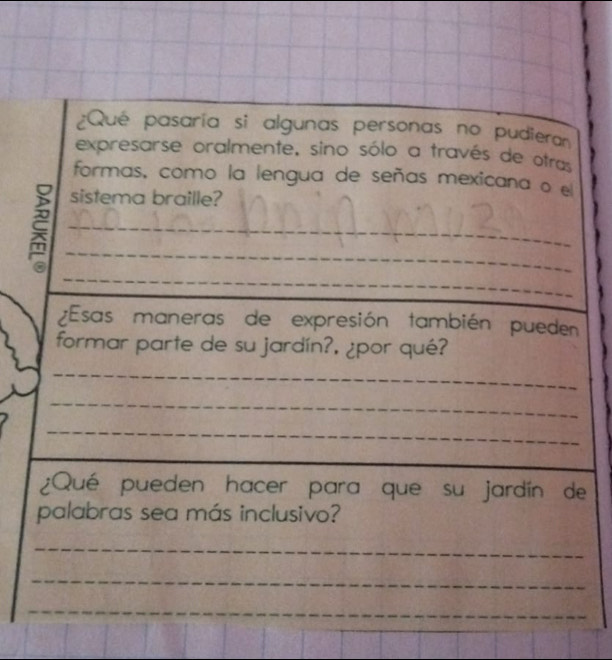 ¿Qué pasaría si algunas personas no pudieran
expresarse oralmente, sino sólo a través de otras
formas, como la lengua de señas mexicana o el
sistema braille?
DARUKEL®
¿Esas maneras de expresión también pueden
formar parte de su jardín?, ¿por qué?
¿Qué pueden hacer para que su jardín de
palabras sea más inclusivo?